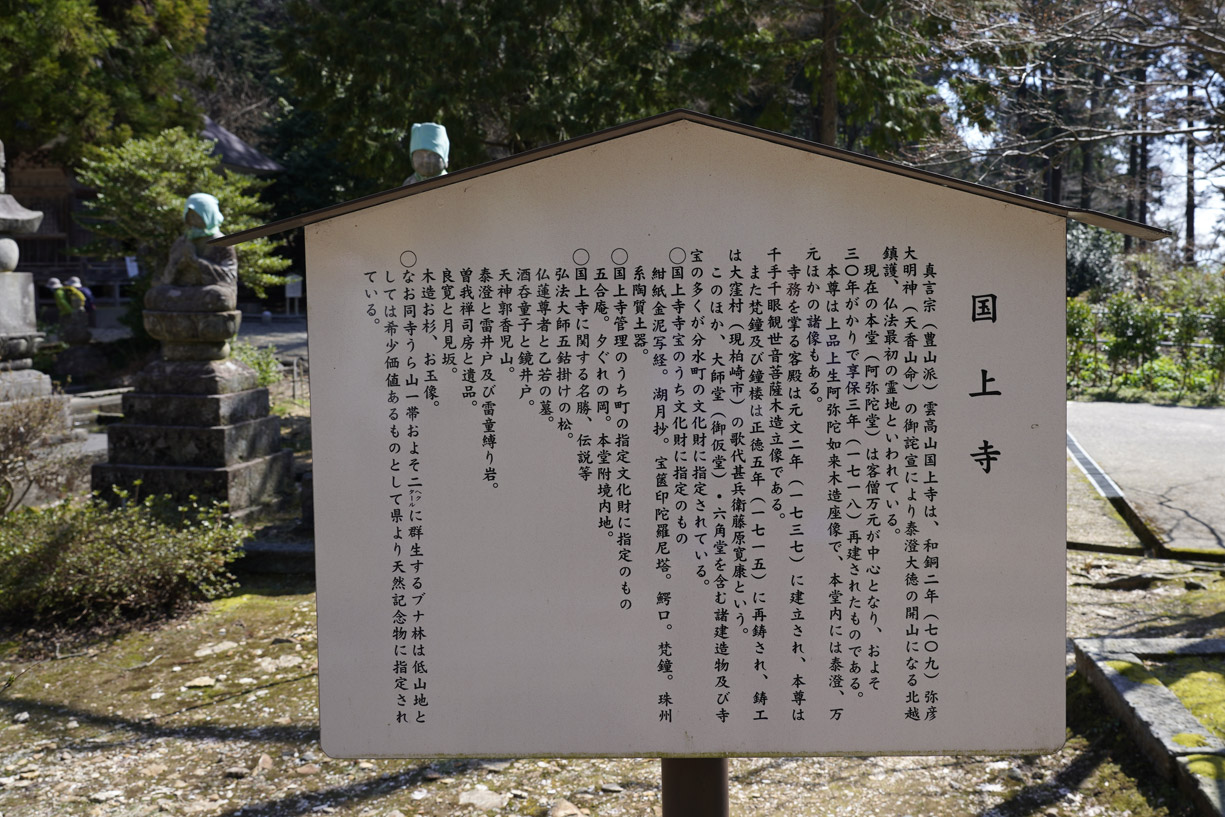 国上寺
真言宗（豊山派）雲高山国上寺は、和銅二年（七〇九）弥彦
大明神（天香山命）の御詫宣により泰澄大徳の開山になる北越
鎮護、仏法最初の霊地といわれている。
現在の本堂（阿弥陀堂）は客僧万元が中心となり、およそ
三〇年がかりで享保三年（一七一八）再建されたものである。
本尊は上品上生阿弥陀如来木造座像で、本堂内には泰澄、万
元ほかの諸像もある。
寺務を掌る客殿は元文二年（一七三七）に建立され、本尊は
千手千眼観世音菩薩木造立像である。
また梵鐘及び鐘楼は正徳五年（一七一五）に再鋳され、鋳工
は大窪村（現柏崎市）の歌代甚兵衛藤原寛康という。
このほか、大師堂（御仮堂）・六角堂を含む諸建造物及び寺
宝の多くが分水町の文化財に指定されている。
〇国上寺寺宝のうち文化財に指定のもの
紺紙金泥写経。湖月抄。宝篋印陀羅尼塔。鰐口。梵鐘。珠州
系陶質土器。
〇国上寺管理のうち町の指定文化財に指定のもの
五合庵。夕ぐれの岡。本堂附境内地。
〇国上寺に関する名勝、伝説等
弘法大師五鈷掛けの松。
仏蓮尊者と乙若の墓。
酒呑童子と鏡井戸。
天神郭香児山。
泰澄と雷井戸及び雷童縛り岩。
曽我禅司房と遺品。
良寛と月見坂。
木造お杉、お玉像。
〇なお同寺うら山一帯およそ二ヘクタールに群生するブナ林は低山地と
しては希少価値あるものとして県より天然記念物に指定され
ている。